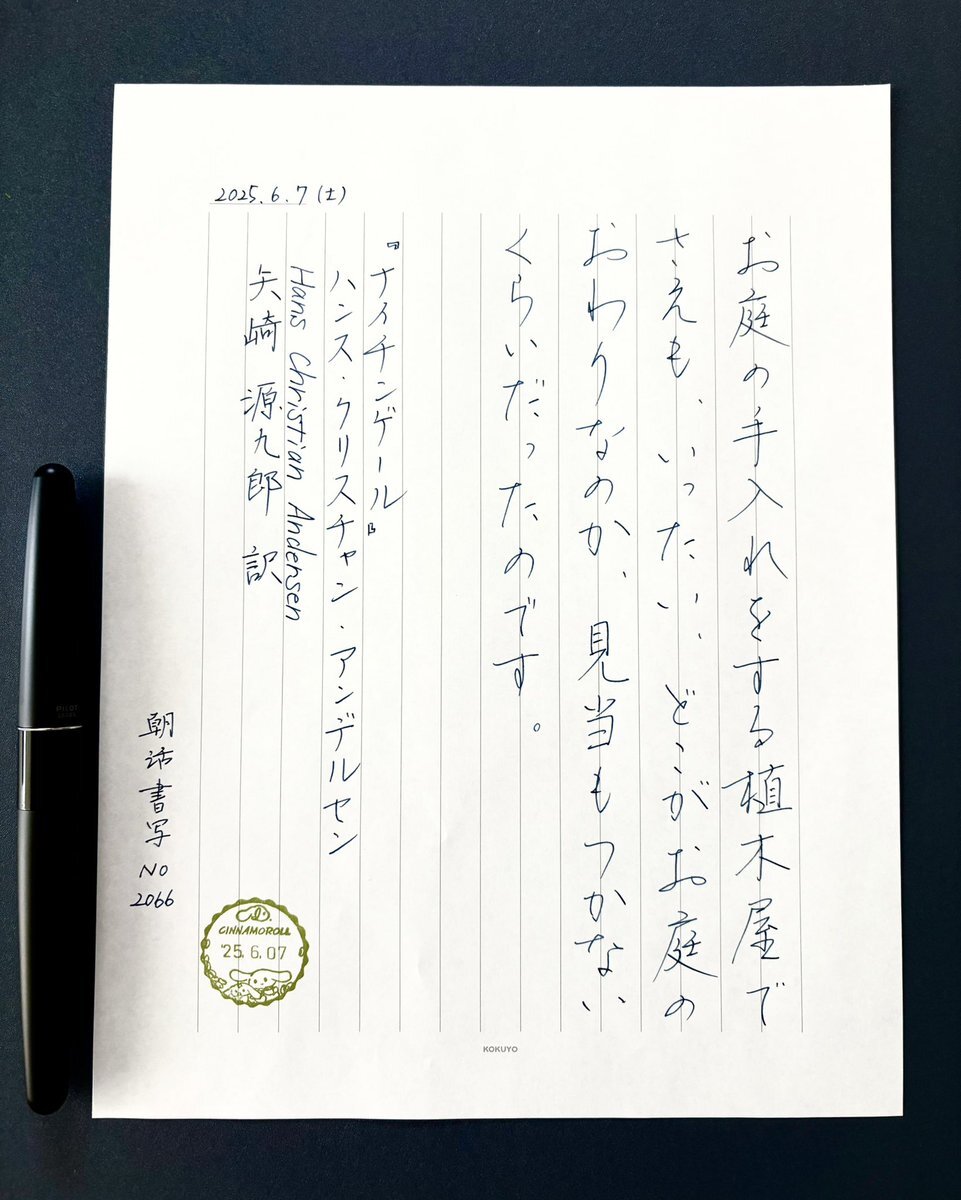 2025.6.7(土)
お庭の手入れをする植木屋で
さえも、いったい、どこがお庭の
おわりなのか、見当もつかない
くらいだったのです。
『ナイチンゲール』
ハンス・クリスチャン・アンデルセン
Hans Christian Andersen
矢崎 源九郎 訳
朝活書写 No
2066
CINNAMOROLL
'25.6.07
KOKUYO
PILOT